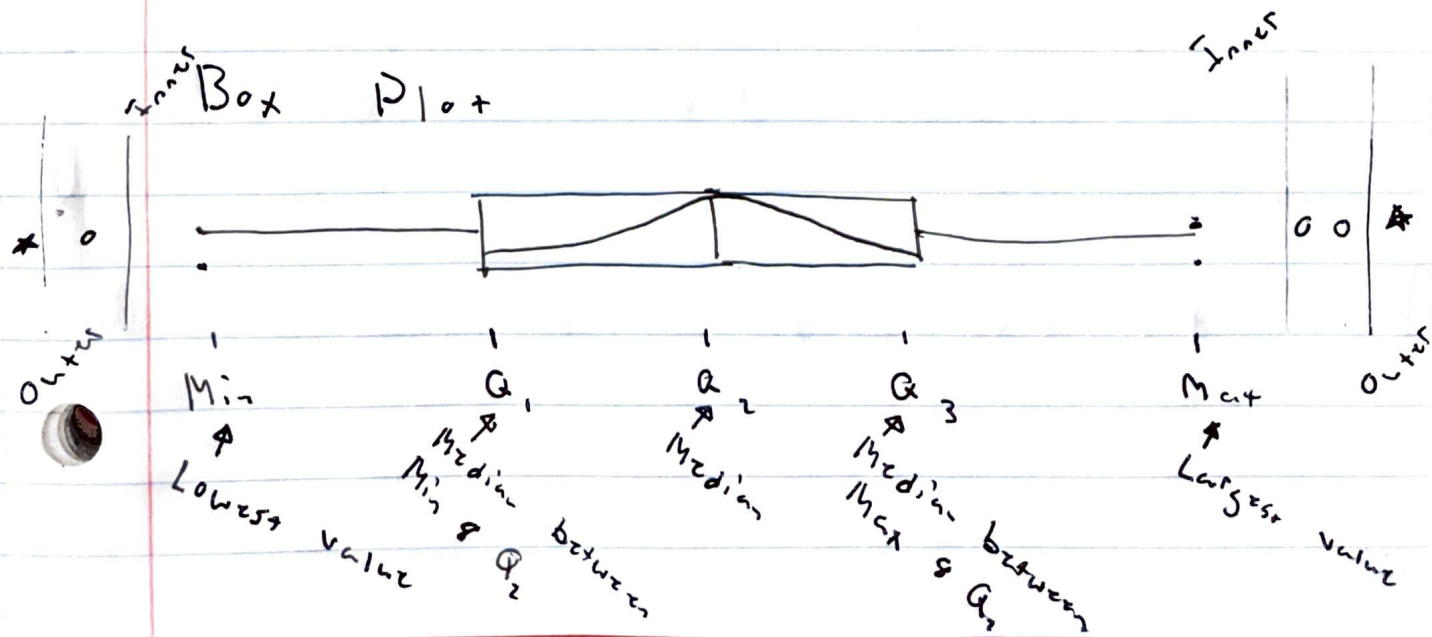 Inner
Inner
Box Plot
Outer
Min
Q1
Q2
Q3
Max
Outer
Lowest value
Median between
Min & Q2
Median
Median between
Max & Q2
Largest value